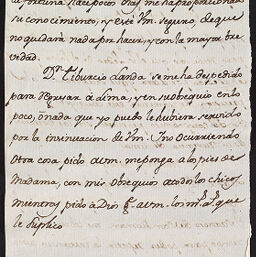 su conocimiento, y esté Vm. seguro, de que
no quedará nada por hacer, y con la mayor bre
vedad.
Dn. Liburcio Landa se me ha despedido
para regresar a Lima, y en su obsequio en lo
poco, ô nada que yo puedo le hubiera servido
por la insinuacion de Vm. Y no ocurriendo
otra cosa pido a Vm. me ponga a los pies de
Madama, con mis obsequios a todos los chicos
mientras pido à Dios gue. a Vm. los ms. as. que
le suplico